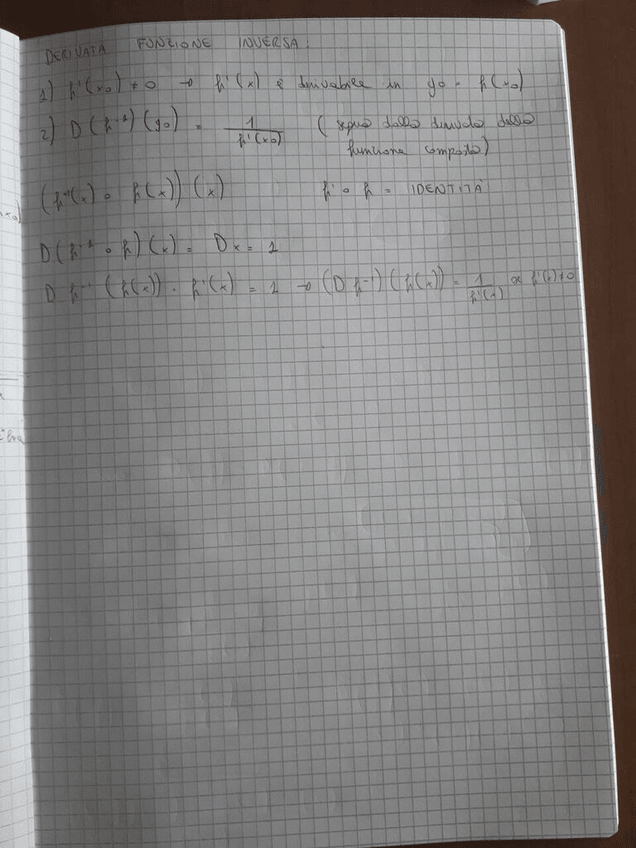 DERIVATA FUNZIONE INVERSA:
1) f'(x0) ≠ 0 → f'(x) è derivabile in y0 = f(x0)
2) D(f⁻¹)(y0) = 1/f'(x0) (segue dalla derivata della
funzione composta)
(f⁻¹(x) ∘ f(x))(x) f' ∘ f = IDENTITÀ
D(f⁻¹ ∘ f)(x) = Dx = 1
D f⁻¹(f(x)) · f'(x) = 1 → (D f⁻¹)(f(x)) = 1/f'(x) se f'(x) ≠ 0